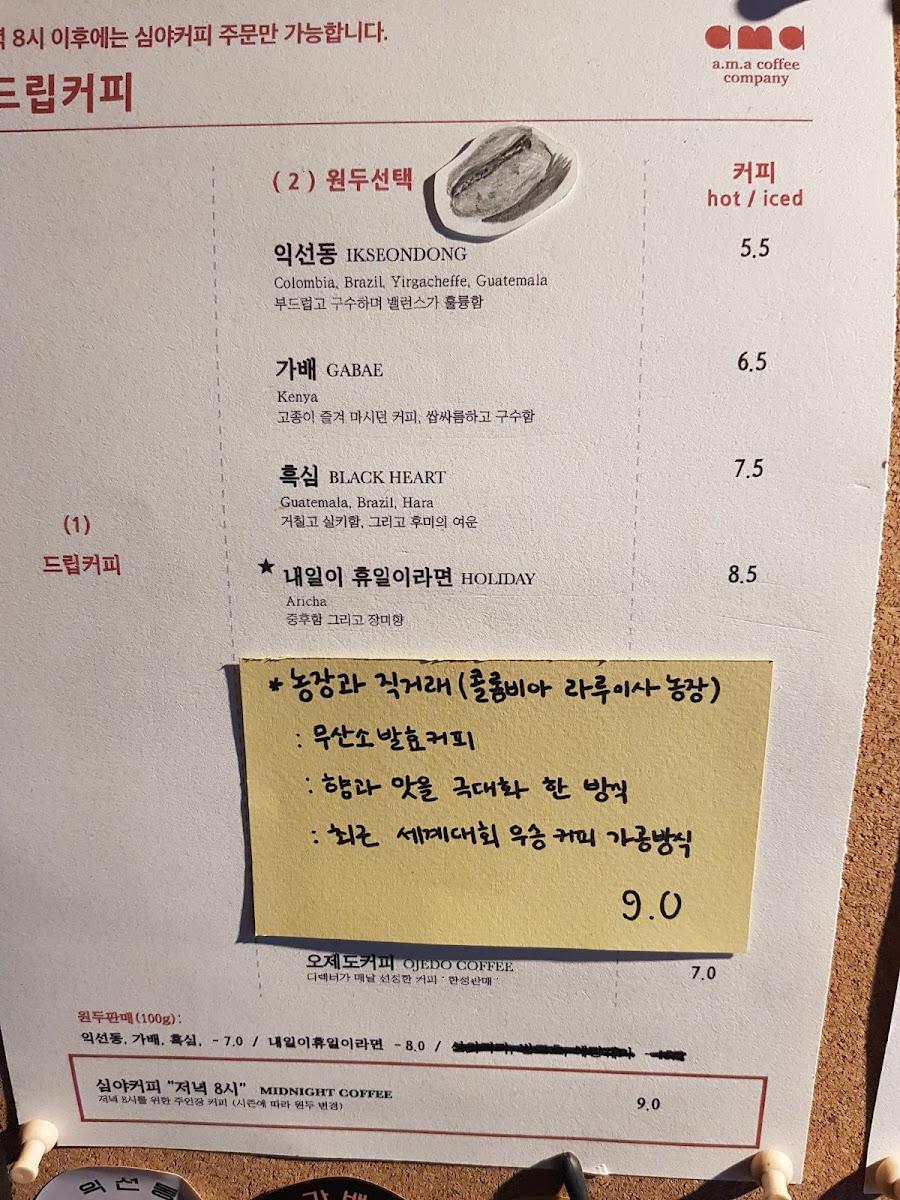 8시 이후에는 심야커피 주문만 가능합니다.
ama
a.m.a coffee
company
드립커피
(2) 원두선택
커피
hot / iced
익선동 IKSEONDONG 5.5
Colombia, Brazil, Yirgacheffe, Guatemala
부드럽고 구수하며 밸런스가 훌륭함
가배 GABAE 6.5
Kenya
고종이 즐겨 마시던 커피, 쌉싸름하고 구수함
흑심 BLACK HEART 7.5
Guatemala, Brazil, Hara
거칠고 실키함, 그리고 후미의 여운
(1)
드립커피
★ 내일이 휴일이라면 HOLIDAY 8.5
Aricha
중후함 그리고 장미향
* 농장과 직거래 (콜롬비아 라루이사 농장)
: 무산소 발효커피
: 향과 맛을 극대화 한 방식
: 최근 세계대회 우승 커피 가공방식
9.0
오제도커피 OJEDO COFFEE 7.0
디렉터가 매달 선정한 커피 "한정판매"
원두판매(100g):
익선동, 가배, 흑심, - 7.0 / 내일이휴일이라면 - 8.0 /
심야커피 "저녁 8시" MIDNIGHT COFFEE 9.0
저녁 8시를 위한 주인장 커피 (시즌에 따라 원두 변경)
익선동
가배